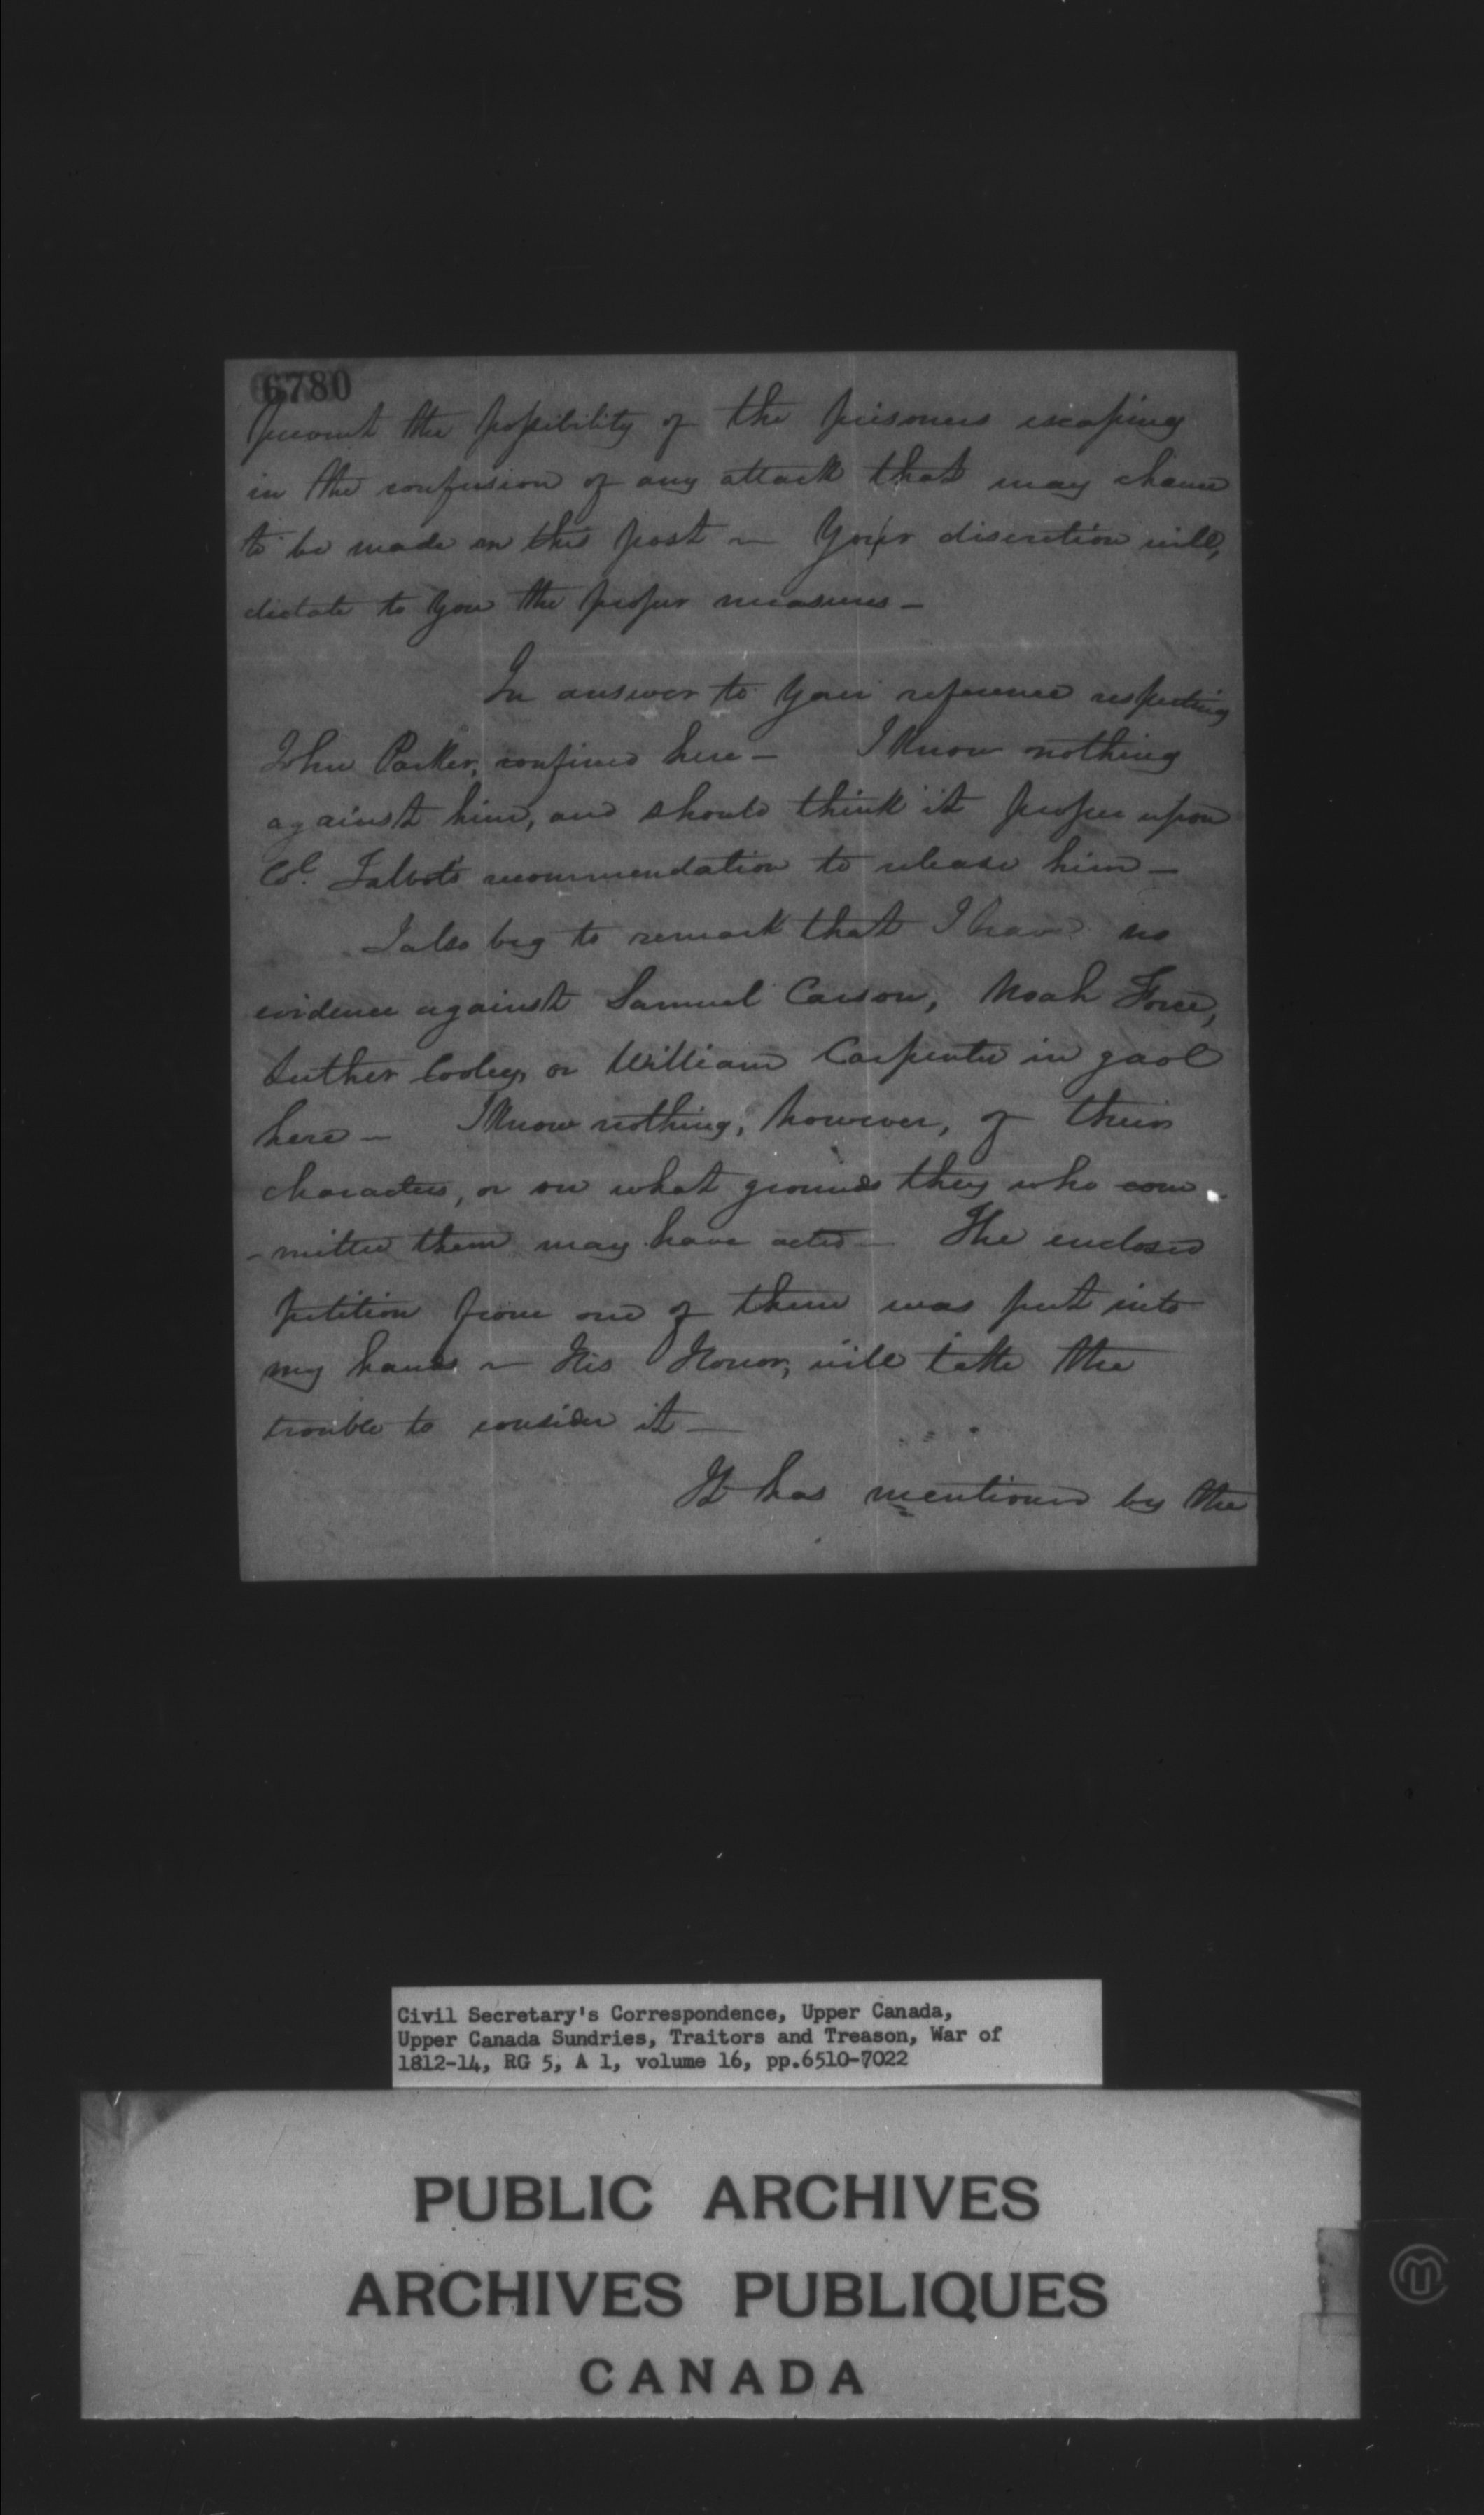 6780
prevent the possibility of the prisoners escaping
in the confusion of any attack that may chance
to be made on this post – Your discretion will,
dictate to you the proper measures –
In answer to your reference respecting
John Parker, confined here – I know nothing
against him, and should think it proper upon
Col. Talbot's recommendation to release him –
I also beg to remark that I have no
evidence against Samuel Carson, Noah Force,
Luther Cooley, or William Carpenter in gaol
here – I know nothing, however, of their
characters, or on what grounds they who com
-mitted them may have acted – The enclosed
petition from one of them was put into
my hands – His Honor, will take the
trouble to consider it –
It has mentioned by the
Civil Secretary's Correspondence, Upper Canada,
Upper Canada Sundries, Traitors and Treason, War of
1812-14, RG 5, A 1, volume 16, pp.6510-7022
PUBLIC ARCHIVES
ARCHIVES PUBLIQUES
CANADA